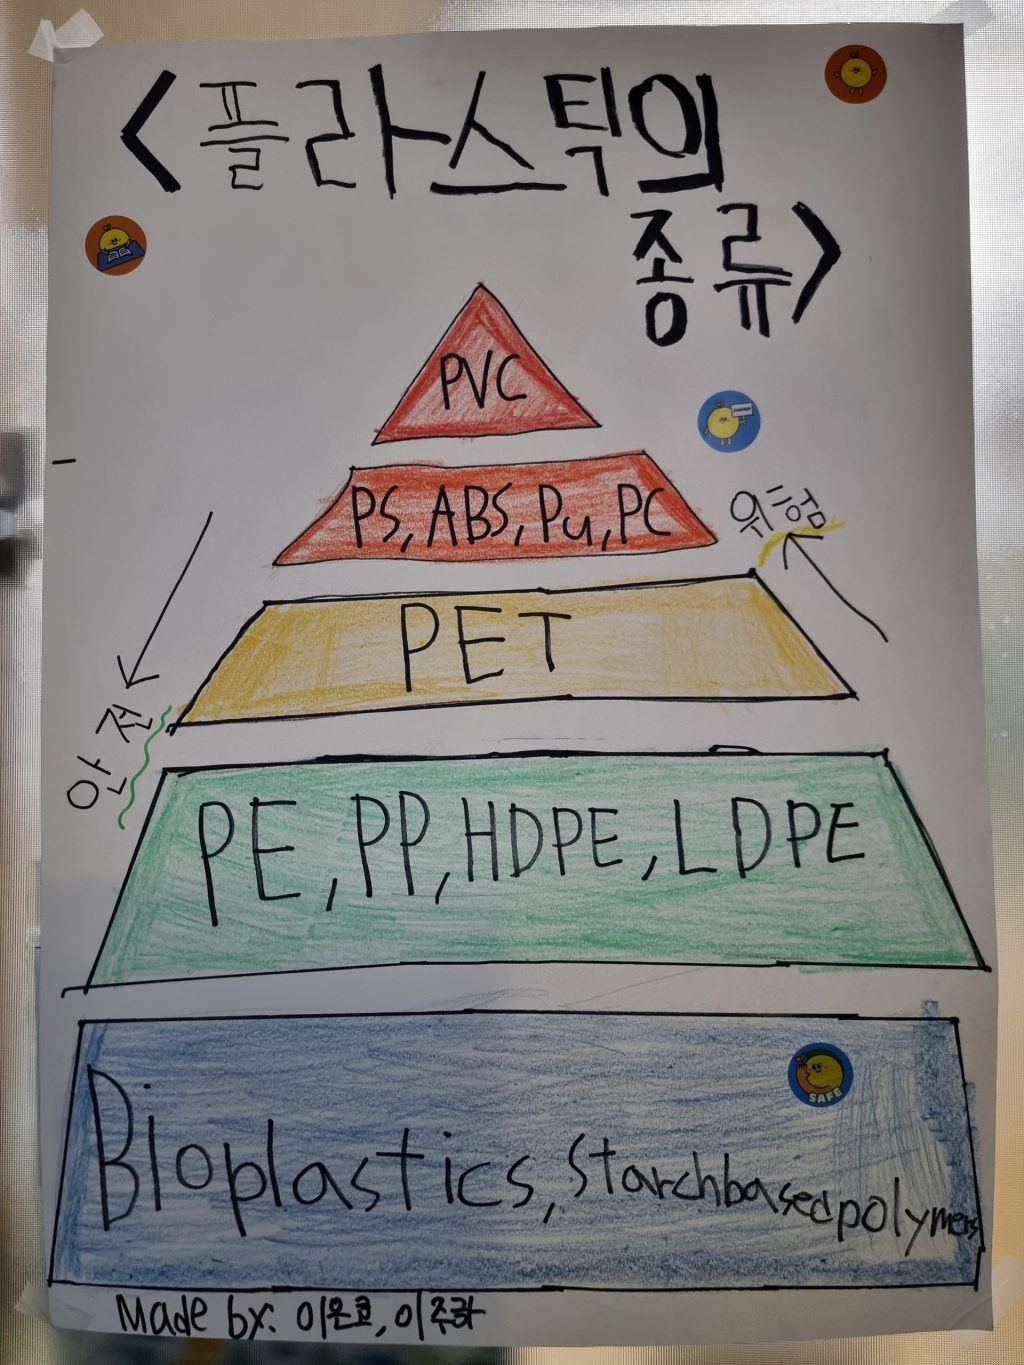 <플라스틱의
종류>
PVC
PS, ABS, Pu, PC
위험
PET
안전
PE, PP, HDPE, LDPE
SAFE
Bioplastics, Starchbased polymers
Made by: 이은코, 이주하